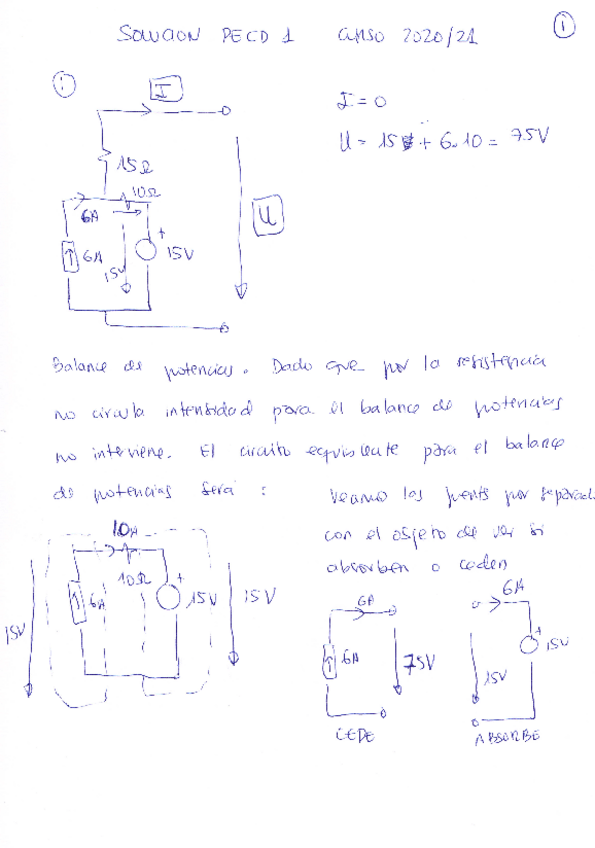 SOLUCION PECD 1 CURSO 2020/21
1
1
I
I = 0
U = 15 + 6·10 = 75V
15Ω
10Ω
6A
6A
15V
+
15V
U
Balance de potencias. Dado que por la resistencia
no circula intensidad para el balance de potencias
no interviene. El circuito equivalente para el balance
de potencias será :
Veamos las fuentes por separad.
con el objeto de ver si
absorben o ceden
10Ω
6A
+
15V
15V
15V
6A
6A
75V
CEDE
6A
+
15V
15V
ABSORBE